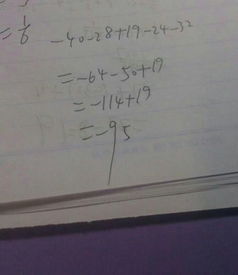 = 1/6
-40-28+19-24-32
=-64-50+19
=-114+19
=-95